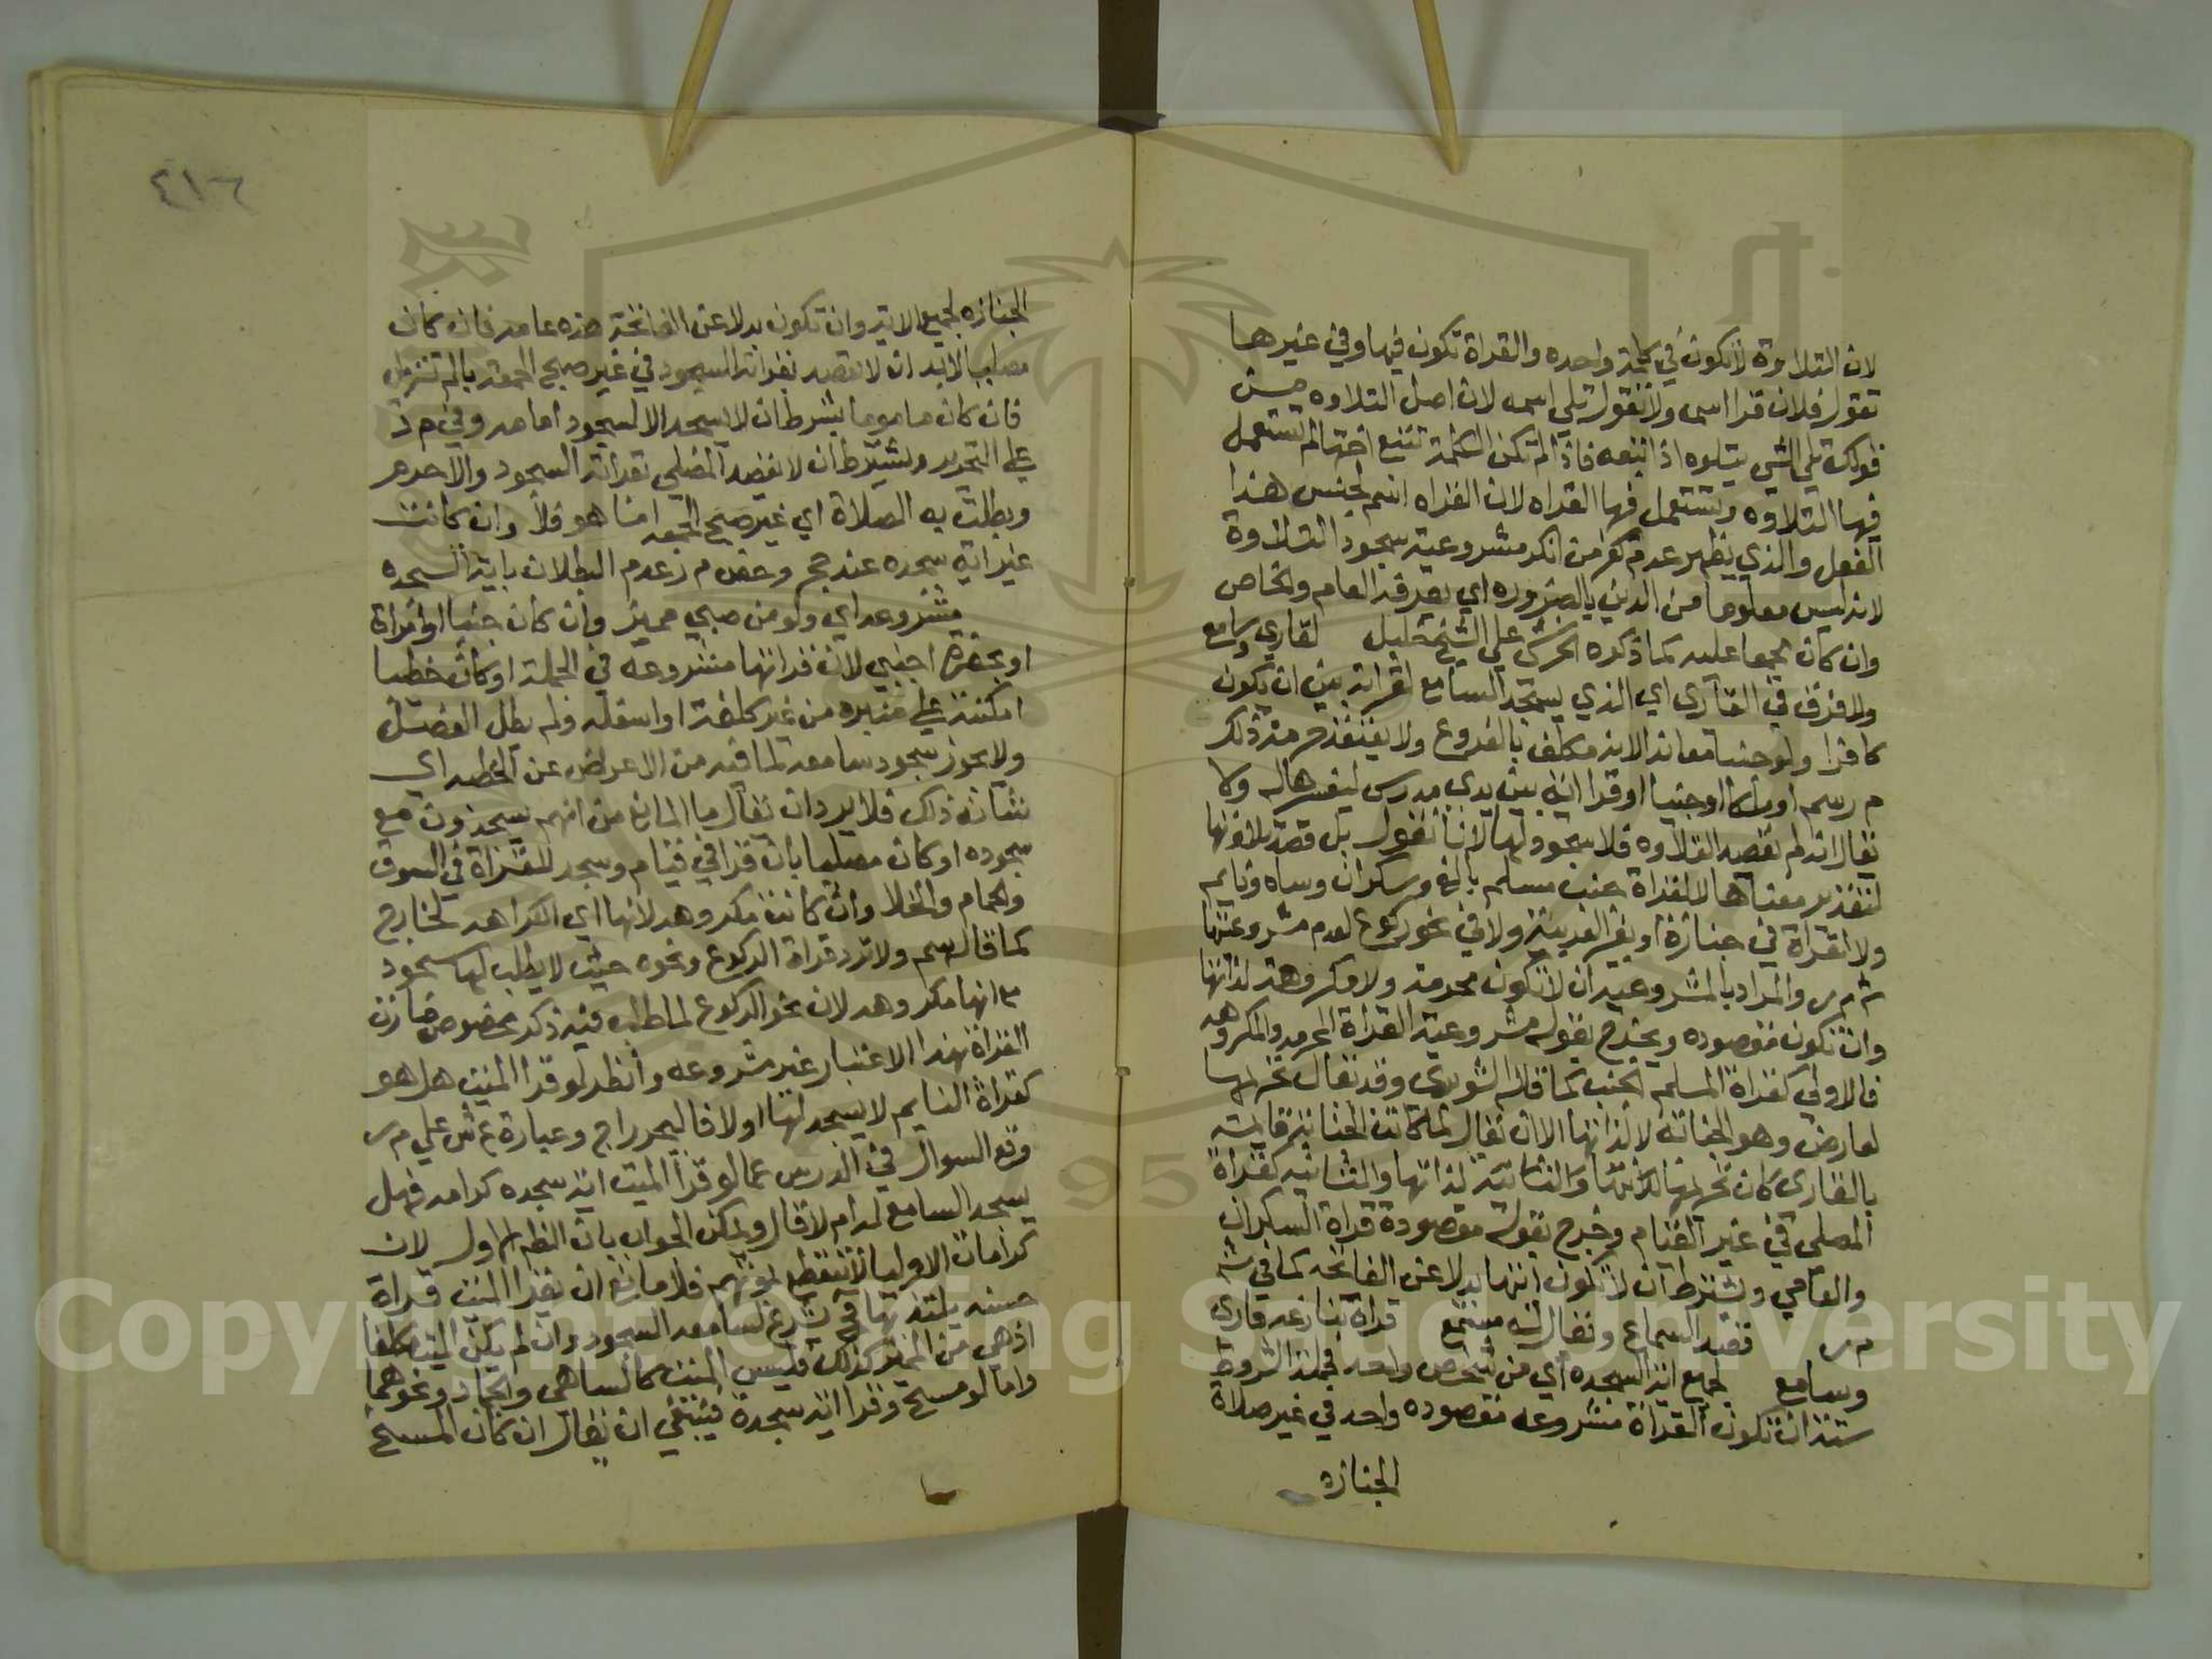 لان التلاوة لا تكون في كلمة واحده والقراة تكون فيها وفي غيرها
تقول فلان قرا اسمه ولا تقول تلى اسمه لان اصل التلاوه من
قولك تلى الشي يتلوه اذا تبعه فاذا لم تكن الكلمة تتبع اختها لم تستعمل
فيها التلاوه وتستعمل فيها القراه لان القراه اسم لجنس هذا
الفعل والذي يظهر عدم كفر من انكر مشروعية سجود التلاوة
لانه ليس معلوما من الدين بالضروره اي يعرفه العام والخاص
وان كان مجمعا عليه كما ذكره الخرشي علي الشيخ خليل لقاري وسامع
ولا فرق في القارى اي الذي يسجد السامع لقراته بين ان يكون
كافرا ولو جنبا معاندا لانه مكلف بالفروع ولا
م ر سم او ملكا او جنيا او قرا اية بين يدي مدرس ليفسرها له ولا
يقال انه لم يقصد التلاوه فلا سجود لها لانا نقول بل قصد تلاوتها
لتقدير معناها لا لقراة جنب مسلم بالغ وسكران وساه ونايم
ولا لقراة في جنازة او بغير العربية ولا في نحو ركوع لعدم مشروعيتها
ش م ر والمراد بالمشروعية ان لا تكون محرمة ولا مكروهة لذاتها
وان تكون مقصوده ويخرج بقوله مشروعية القراة المحرمه والمكروهه
فالاولي كقراة المسلم الجنب كما قاله الشوبري وقد يقال تحريمها
لعارض وهو الجنابه لا لذاتها الا ان يقال لما كانت الجنابة قايمة
بالقارى كان تحريمها لذاتها والثانية كقراة
المصلي في غير القيام وخرج بقوله مقصودة قراة السكران
والساهي ويشترط ان لا تكون اتيتها بدلا عن الفاتحه كما في ش
م ر قصد السماع ويقال له مستمع قراة تنازعه قارى
وسامع لجميع اية السجده اي من شخص واحد فجملة الشروط
ستة ان تكون القراة مشروعه مقصوده واحد في غير صلاة
الجنازه
٤١٦
الجنازه لجميع الاية وان تكون بدلا عن الفاتحة هذه عامه فان كان
مصليا لابد ان لا يقصد بقراته السجود في غير صبح الجمعة بالم تنزيل
فان كان ماموما يشرط ان لا يسجد الا لسجود امامه وفي م د
علي التحرير ويشترط ان لا يقصد المصلي بقراته السجود والا حرم
وبطلت به الصلاة اي غير صبح الجمعه اما هو فلا وان كانت
غير اية سجده عند حج وخص م ر عدم البطلان باية السجده
مشروعه اي ولو من صبي مميز وان كان جنبا او امراة
او بحضرة اجنبي لان قراتها مشروعه في الجملة او كان خطيبا
امكنه علي منبره من غير كلفة او اسفله ولم يطل الفصل
ولا يجوز سجود سامعه لما فيه من الاعراض عن الخطبه اي
شانه ذلك فلا يرد ان يقال ما المانع من انهم يسجدون مع
سجوده او كان مصليا بان قرا في قيام وسجد للقراة في السوق
والحمام والخلا وان كانت مكروهه لانها اي الكراهه لخارج
كما قاله سم ولا ترد قراة الركوع ونحوه حيث لا يطلب لها سجود
مع انها مكروهه لان نحو الركوع لما طلب فيه ذكر مخصوص صارت
القراة بهذا الاعتبار غير مشروعه وانظر لو قرا الميت هل هو
كقراة النايم لا يسجد لها او لا فاليحرر اج وعبارة ع ش علي م ر
وقع السوال في الدرس عما لو قرا الميت اية سجده كرامه فهل
يسجد السامع له ام لا قال ويمكن الجواب بان الظاهر الاول لان
كرامات الاوليا لا تنقطع بموتهم فلا مانع ان يقرا الميت قراة
حسنه يلتذ بها فيشرع لسامعه السجود وان لم يكن الميت مكلفا
اذ هي من المميز كذلك فليس الميت كالساهي والجماد ونحوهما
واما لو مسخ وقرا اية سجدة فينبغي ان يقال ان كان المسخ
Copyright © King Saud University
1957